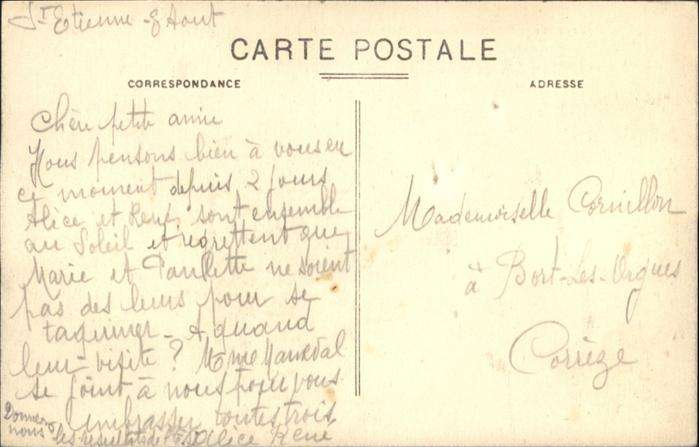 St Etienne - 8 Aout
CARTE POSTALE
CORRESPONDANCE
ADRESSE
Chère petite amie
Nous pensons bien à vous en
ce moment depuis 2 jours
Alice et René sont ensemble
au Soleil et regrettent que
Marie et Paulette ne soient
pas des leurs pour se
taquiner - A quand
leur visite ? Mme
se joint à nous pour vous
embrasser toutes trois
Alice René
Donnez
nous les résultats de
Mademoiselle Cornillon
à Bort-Les-Orgues
Corrèze